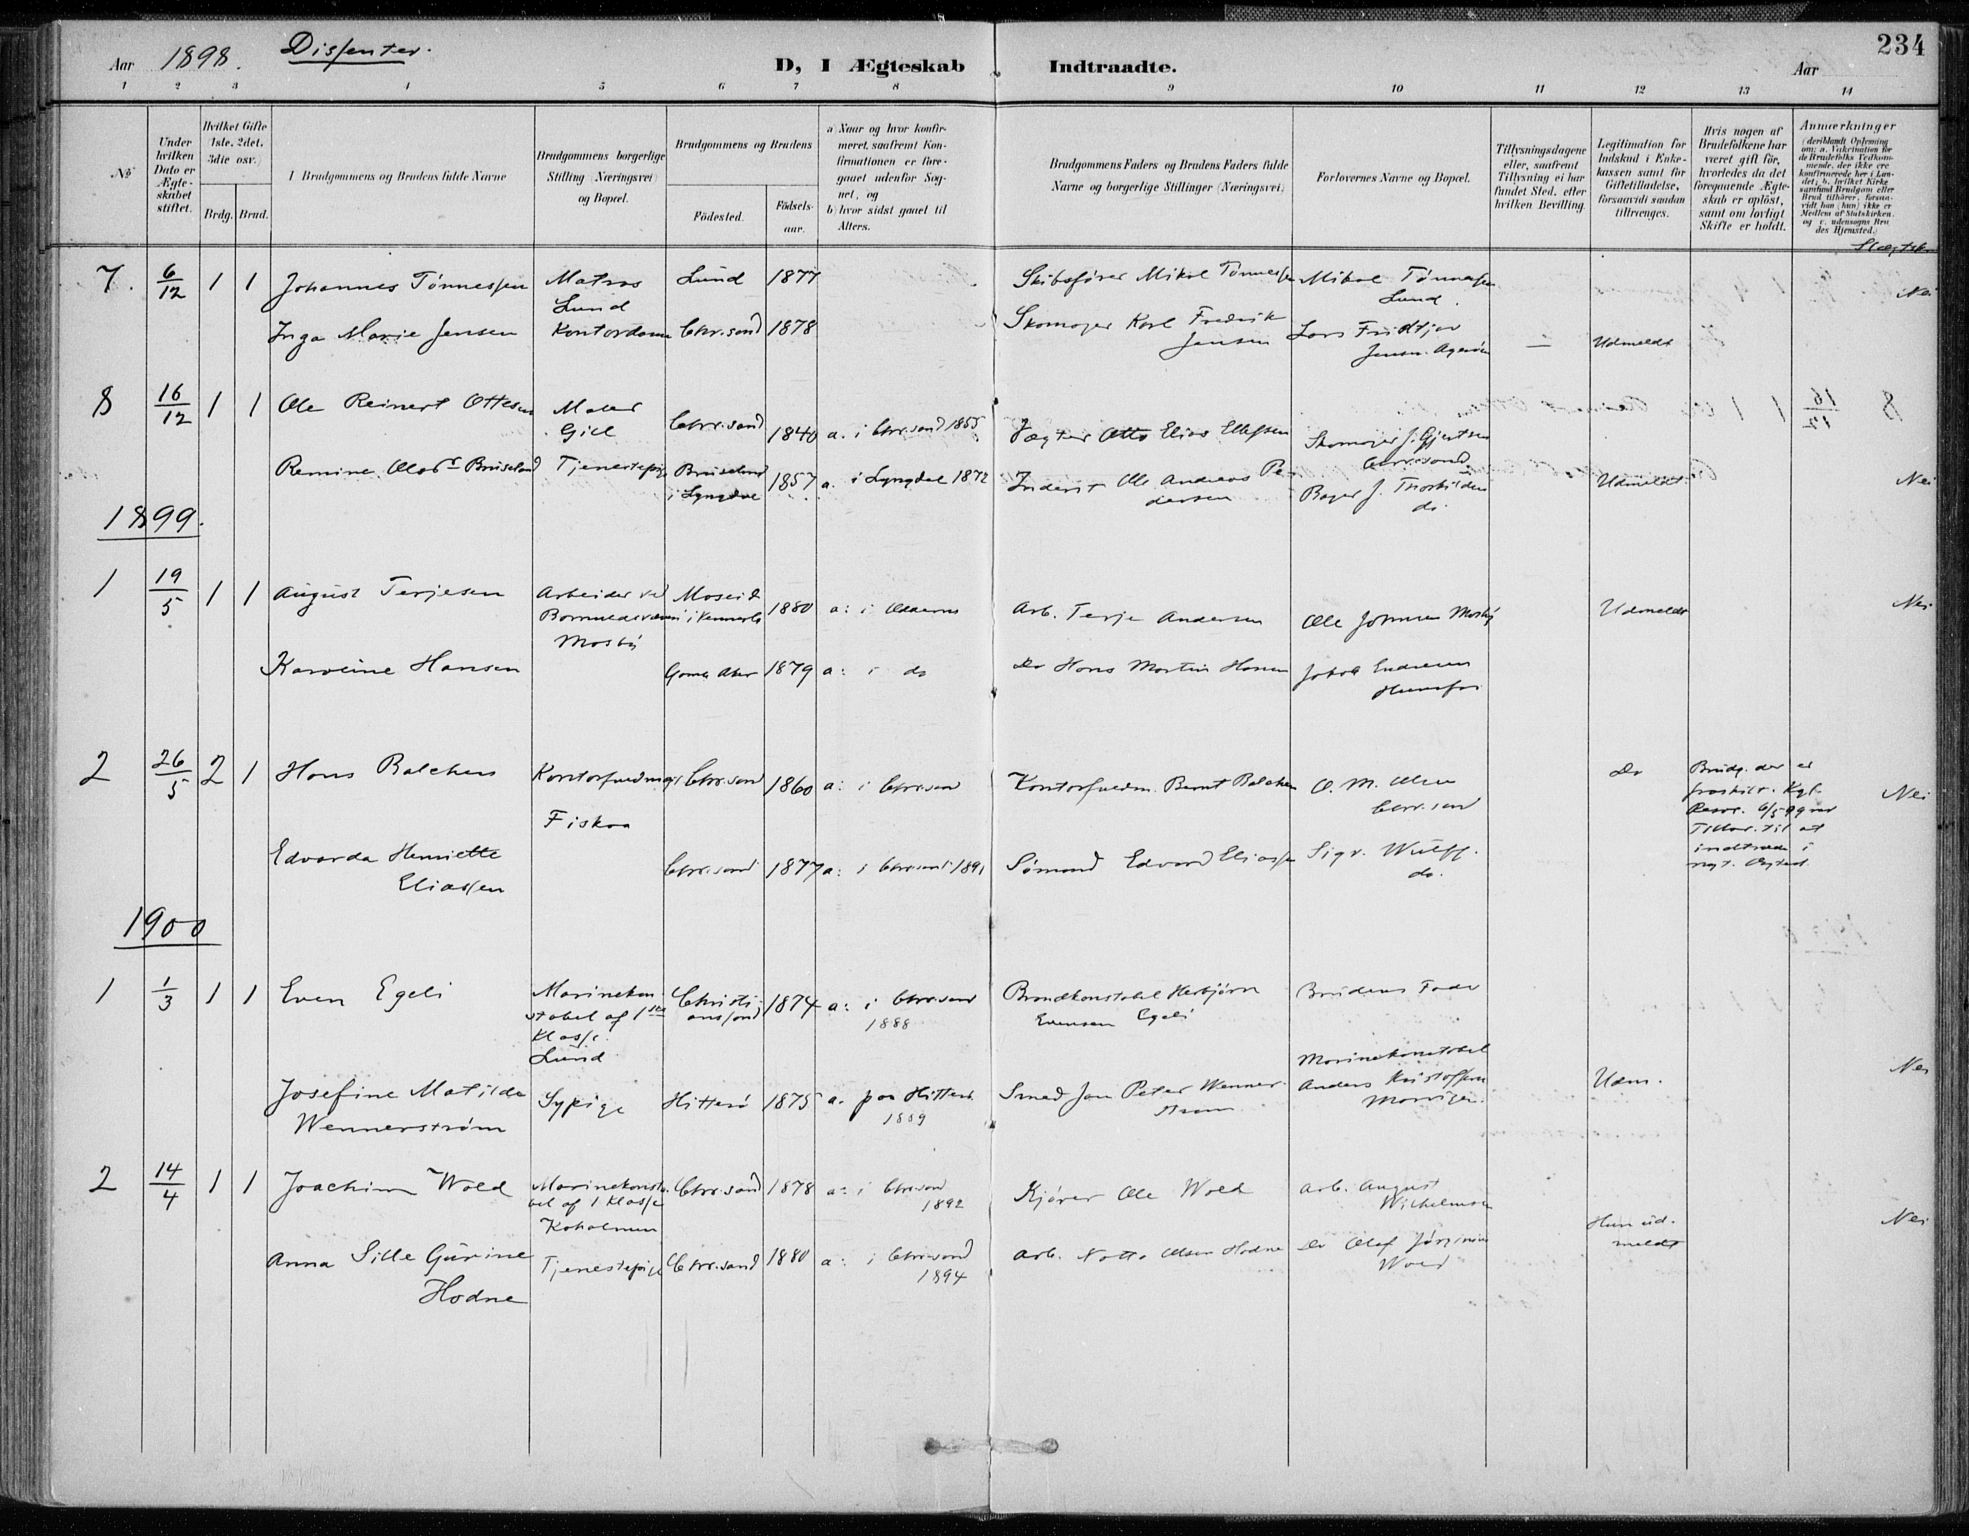 234
Aar 1898. Dissenter.
D, I Ægteskab Indtraadte.
Aar
1 2 3 4 5 6 7 8 9 10 11 12 13 14
No
Under hvilken Dato er Ægteskabet stiftet.
Hvilket Gifte (1ste, 2det, 3die osv.)
Brdg. Brud.
I Brudgommens og Brudens fulde Navne
Brudgommens borgerlige Stilling (Næringsvei) og Bopæl.
Brudgommens og Brudens
Fødested.
Fødselsaar.
a) Naar og hvor konfirmeret, saafremt Konfirmationen er foregaaet udenfor Sognet, og
b) hvor sidst gaaet til Alters.
Brudgommens Faders og Brudens Faders fulde Navne og borgerlige Stillinger (Næringsvei)
Forlovernes Navne og Bopæl.
Tillysningsdagene eller, saafremt Tillysning ei har fundet Sted, efter hvilken Bevilling.
Legitimation for Indskud i Enkekassen samt for Giftetilladelse, forsaavidt saadan tiltrænges.
Hvis nogen af Brudefolkene har været gift før, hvorledes da det foregaaende Ægteskab er opløst, samt om lovligt Skifte er holdt.
Anmærkninger
7. 6/12 1 1 Johannes Tönnessen Matros Lund Lund 1877 Skibsfører Mikal Tönnessen Mikal Tönnessen Lund. Nei
Inga Marie Jensen Kontordame Chr.sand 1878 Skomager Karl Fredrik Jensen Lars Fridtjov Jensen — Udmeldt
8 16/12 1 1 Ole Reinert Ottesen Maler Gill Chr.sand 1840 a. i Chr.sand 1855 Vægter Otto Elias Ellefsen Skomager J. Gjertsen Chr.sand
Remine Olsdr Bruseland Tjenestepige Bruseland i Lyngdal 1857 a. i Lyngdal 1872 Inderst Ole Andreas Pedersen Bager J. Thorkildsen do. Udmeldt Nei
1899.
1 19/5 1 1 August Terjesen Arbeider ved Mosby Moseid i 1880 a: i Arb. Terje Andersen Ole Johnsen Mosby Udmeldt Nei
Karoline Hansen 1879 a: i do Do Hans Martin Hansen Jakob Hunsfos
2 26/5 2 1 Hans Balchen Kontorfuldmægt. Fiskaa Chr.sand 1860 a: i Chr.sand Kontorfuldm. Bernt Balchen O. M. Olsen Chr.sand Do Brudg. der er fraskilt. Kgl. Resol. 6/5 99 til at indtræde i nyt Nei
Edvarda Henriette Eliassen Chr.sand 1877 a: i Chr.sand 1891 Sømand Edvard Eliassen Sigv. Wulff. do.
1900
1 1/3 1 1 Even Egeli Marinekonstabel af 1ste Klasse. Lund Christianssand 1874 a: i Chr.sand 1888 Brandkonstabel Herbjørn Evensen Egeli Brudens Fader
Josefine Matilde Wennerström Sypige Hitterö 1875 a. paa Hitterö 1889 Smed Jan Peter Wennerström Marinekonstabel Anders Kristoffersen Udm. Nei
2 14/4 1 1 Joachim Wold Marinekonstabel af 1 Klasse Koholmen Chr.sand 1878 a: i Chr.sand 1892 Kjører Ole Wold Arb. August Wilhelmsen Hun udmeldt Nei
Anna Sille Gurine Hodne Tjenestepige Chr.sand 1880 a: i Chr.sand 1894 Arb. Notto Olsen Hodne Do Olaf Jörginius Wold